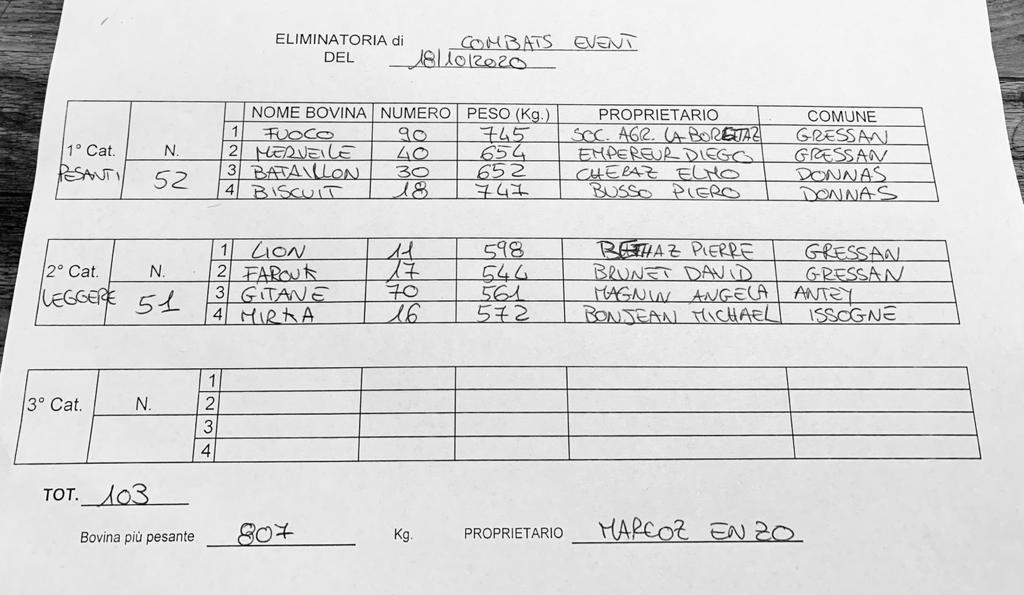 ELIMINATORIA di COMBATS EVENT
DEL 18/10/2020
NOME BOVINA NUMERO PESO (Kg.) PROPRIETARIO COMUNE
1° Cat. PESANTI N. 52
1 FUOCO 90 745 SOC. AGR. LA BORETTAZ GRESSAN
2 MERVEILE 40 654 EMPEREUR DIEGO GRESSAN
3 BATAILLON 30 652 CHERAZ ELMO DONNAS
4 BISCUIT 18 747 BUSSO PIERO DONNAS
2° Cat. LEGGERE N. 51
1 LION 11 598 BETHAZ PIERRE GRESSAN
2 FAROUK 17 544 BRUNET DAVID GRESSAN
3 GITANE 70 561 MAGNIN ANGELA ANTEY
4 MIRKA 16 572 BONJEAN MICHAEL ISSOGNE
3° Cat. N.
1
2
3
4
TOT. 103
Bovina più pesante 807 Kg. PROPRIETARIO MARCOZ ENZO